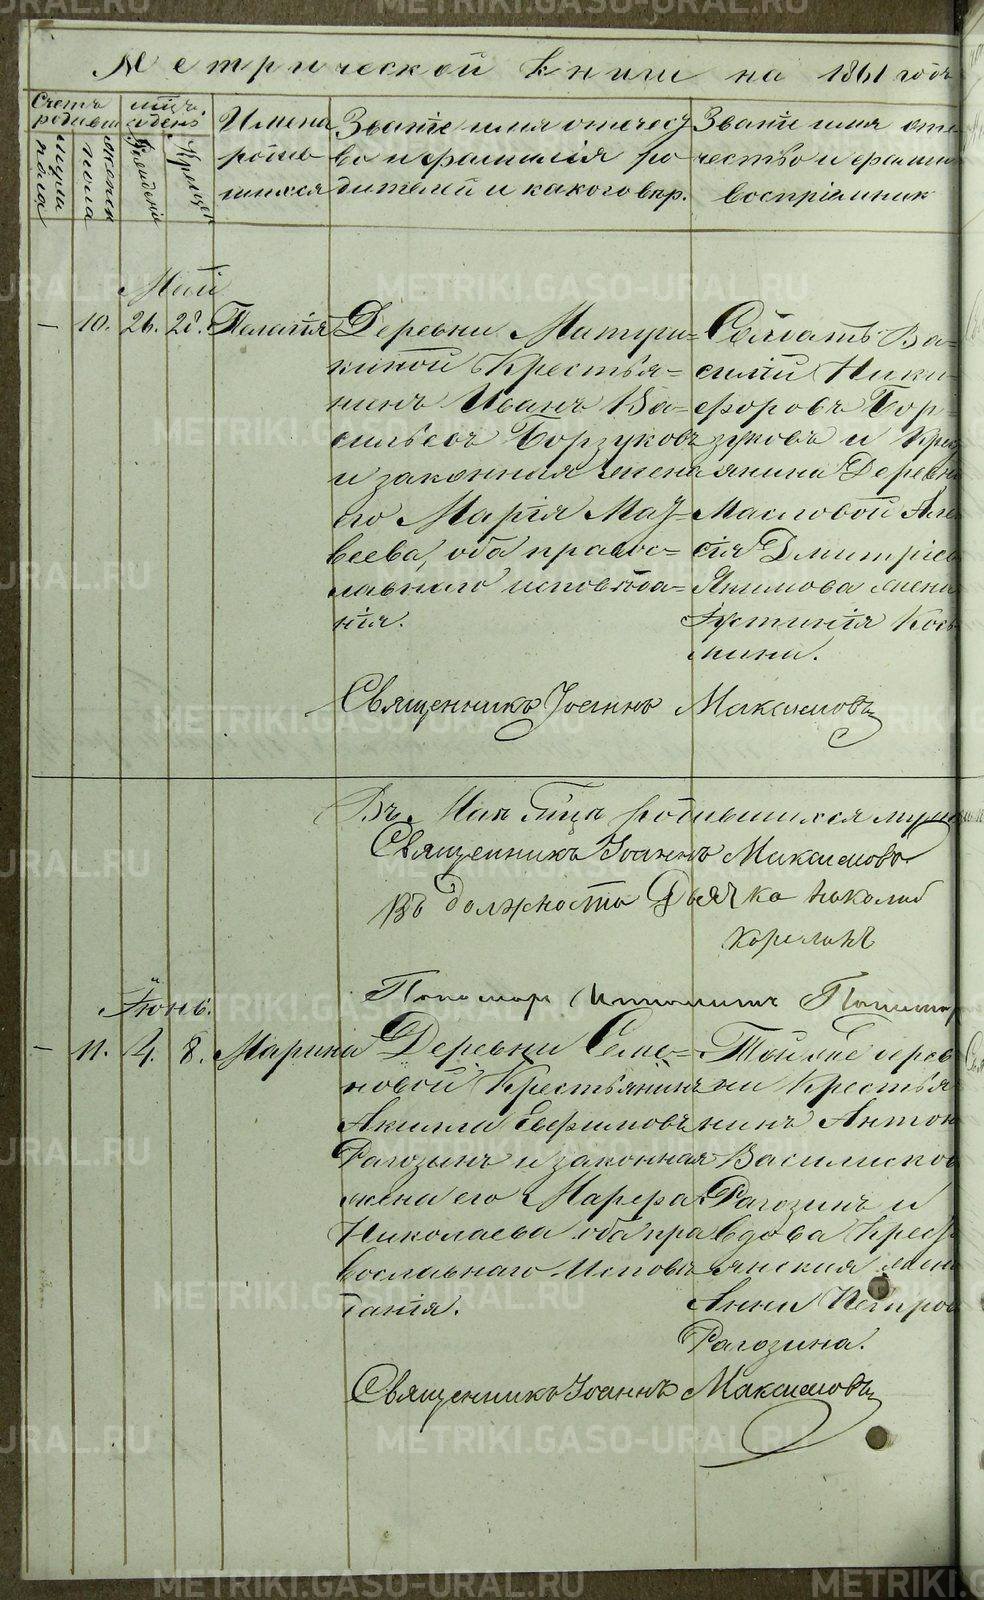 Метрической книги на 1861 годъ
Счетъ родивш
мужеска пола
женска пола
мцъ и день
Рожденія
Крещен
Имена родившихся
Званіе имя отчест
во и фамилія ро
дителей и какого вѣр.
Званіе имя оте
чество и фамил
воспріемник
Май
— 10. 26. 28. Пелагія
Деревни Матуш=
киной Крестья=
нинъ Иванъ Ва=
сильевъ Борзуковъ
и законная жена
его Марія Мат=
веева, оба правос=
лавнаго исповѣда=
нія.
Солдатъ Ва=
силій Ники=
форовъ Бор=
зуковъ и Крест
янина Деревни
Масловой Але
сія Дмитріев
Якимова жена
Іустинія Козь
мина.
Священникъ Іоаннъ Максимовъ
Въ Маѣ мцѣ родившихся муже
Священникъ Іоаннъ Максимовъ
Въ должности Дьячка Николай
Корелинъ
Пономарь
Іюнь.
— 11. 4. 8. Марина
Деревни Семе=
новой Крестьянинъ
Акила Ефимовъ
Рагозинъ и законная
жена его Марфа
Николаева оба пра
вославнаго Исповѣ
данія.
Той же дерев
ни Крестья
нинъ Антон
Василисков
Рагозинъ и
вдова Крест
янская жен
Анна Петров
Рагозина.
Священникъ Іоаннъ Максимовъ
METRIKI.GASO-URAL.RU